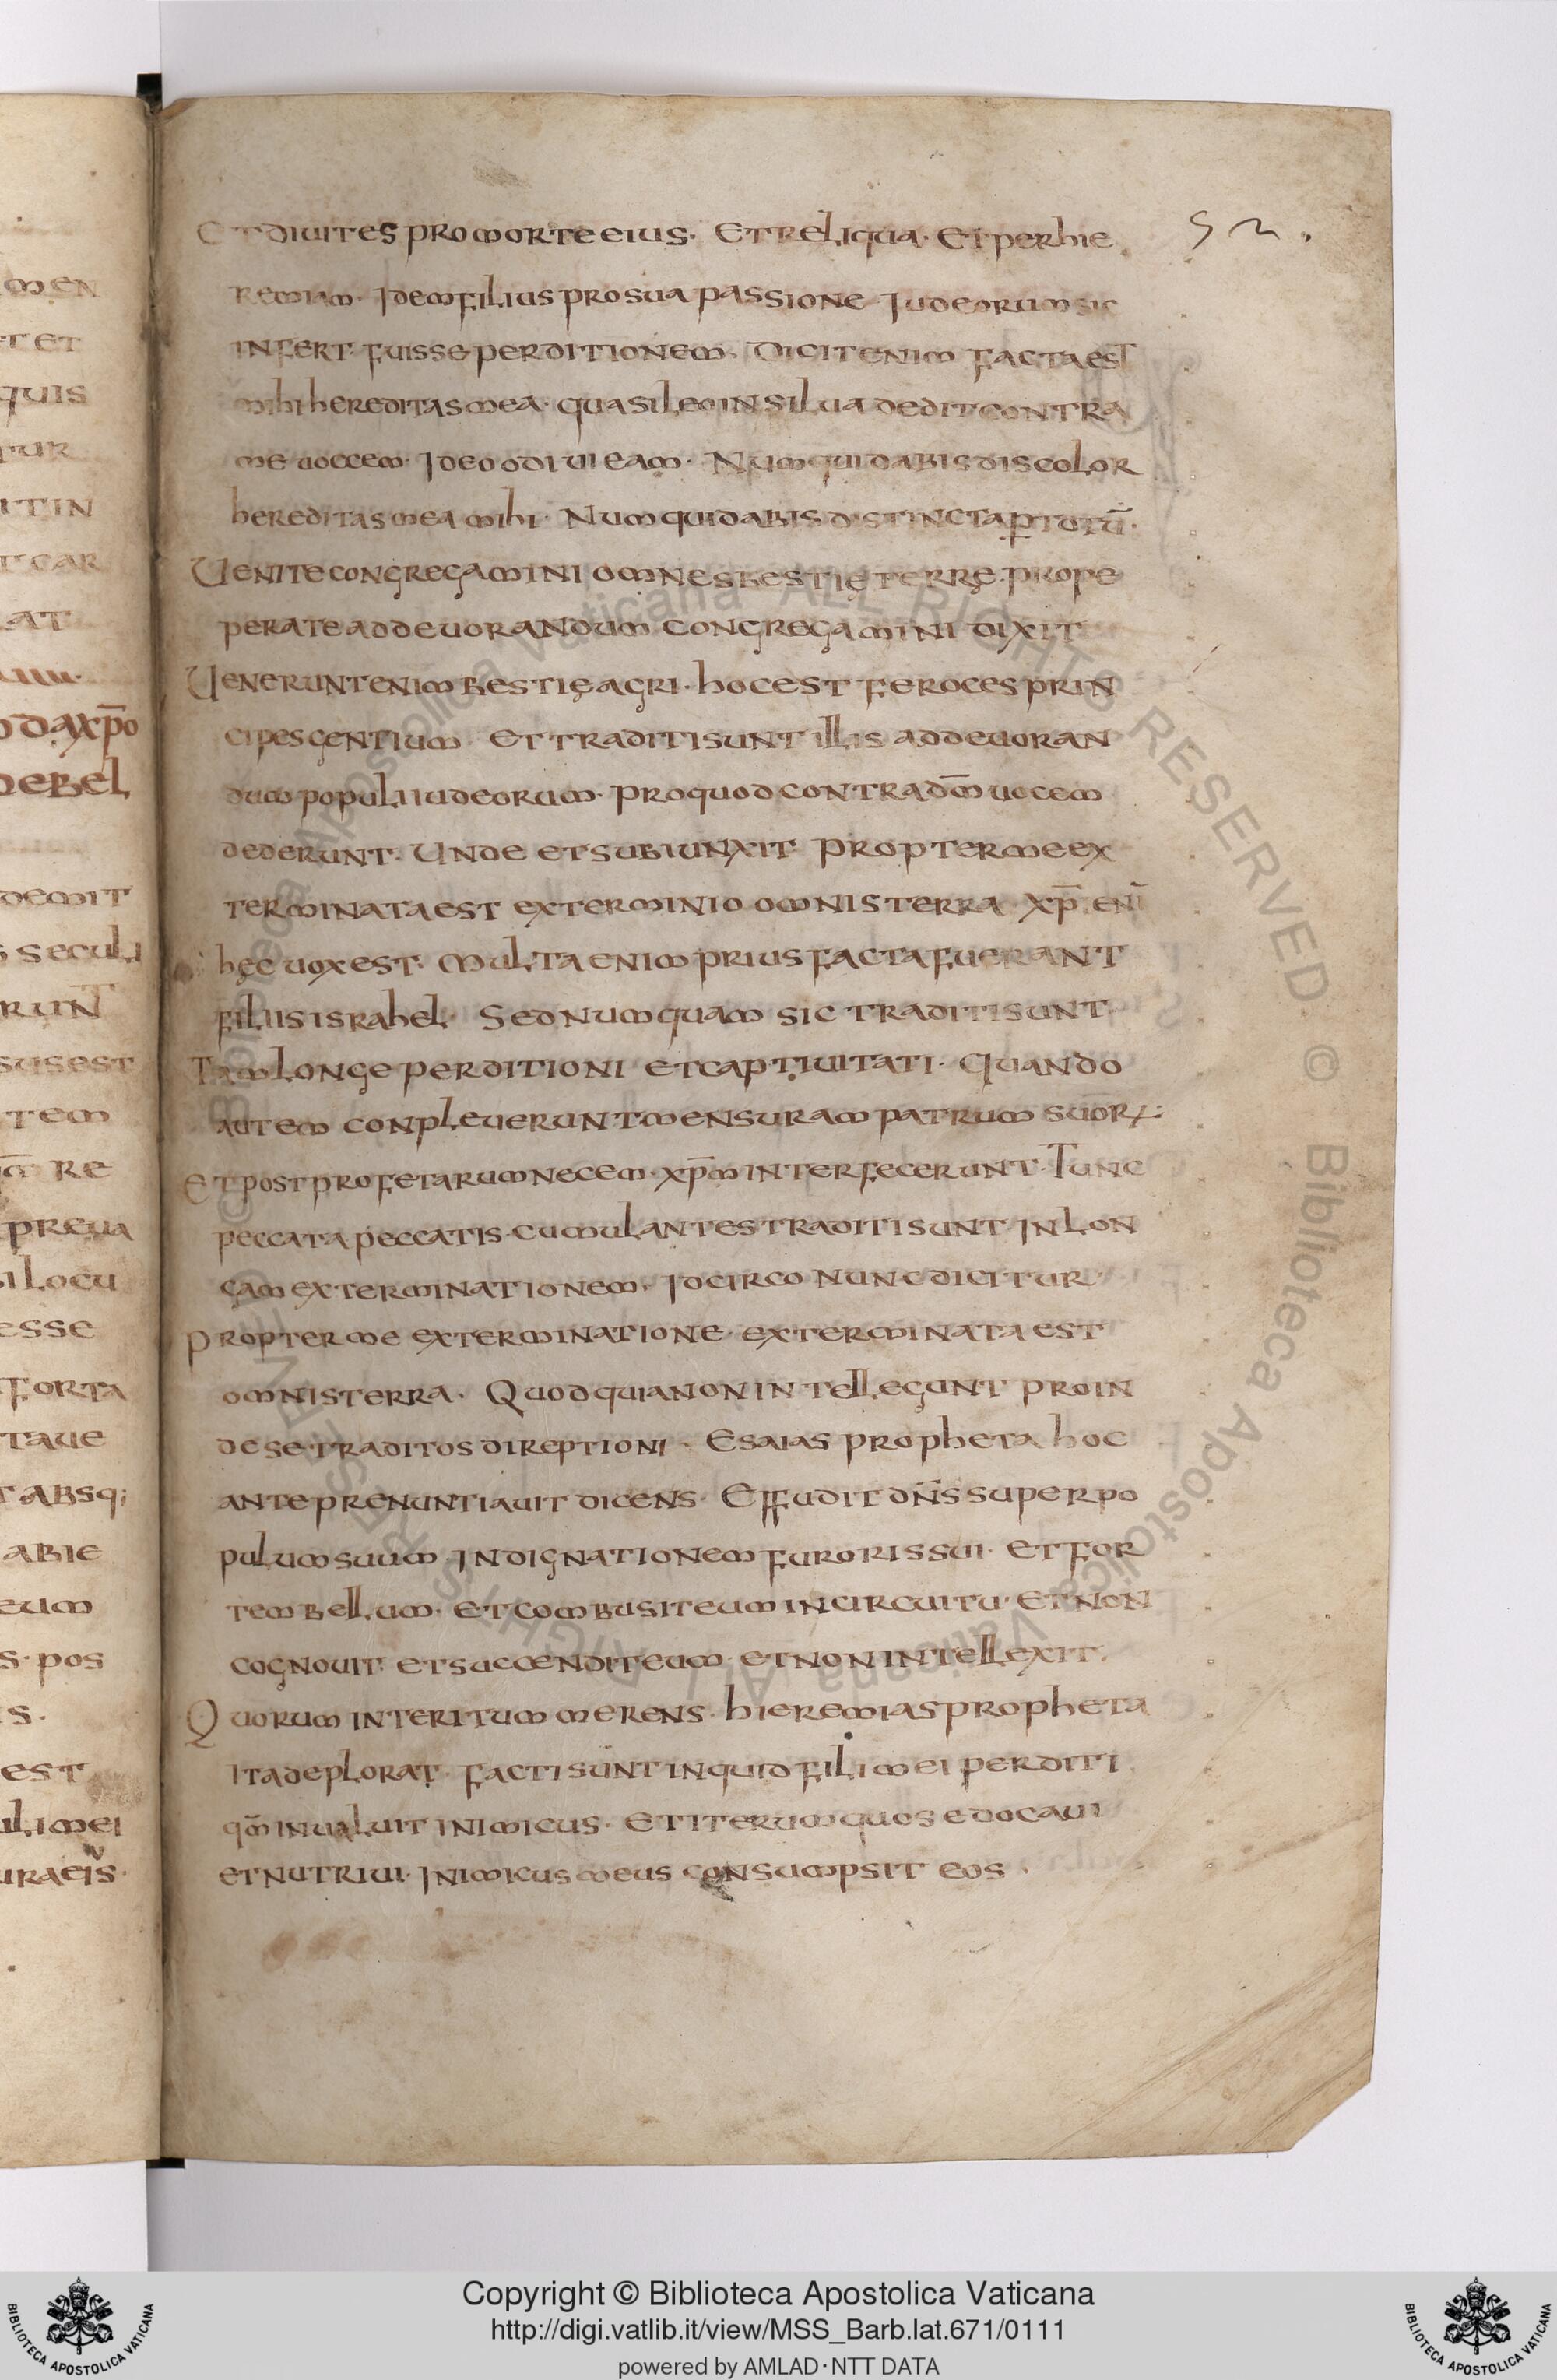 Et diuites pro morte eius. Et reliqua. Et per hie
remiam. Idem filius pro sua passione Iudeorum sic
infert. fuisse perditionem. Dicit enim facta est
mihi hereditas mea. quasi leo in silua dedit contra
me uoccem. Ideo odiui eam. Numquid abis discolor
hereditas mea mihi. Numquid abis distincta p totū.
Uenite congregamini omnes bestię terrę. prope
perate ad deuorandum congregamini dixit
Uenerunt enim bestię agri. hoc est feroces prin
cipes gentium. Et traditi sunt illis ad deuoran
dum populi iudeorum. pro quod contra dm̄ uocem
dederunt. Unde et subiunxit propter me ex
terminata est exterminio omnis terra. xp̄i enī
hęc uox est. Multa enim prius facta fuerant
filiis israhel. Sed numquam sic traditi sunt
Tam longe perditioni et captiuitati. Quando
autem conpleuerunt mensuram patrum suor.
Et post profetarum necem. xp̄m interfecerunt. Tunc
peccata peccatis. cumulantes traditi sunt. in lon
gam exterminationem. Idcirco nunc dicitur
propter me exterminatione exterminata est
omnis terra. Quod quia non intellegunt proin
de se traditos direptioni. Esaias propheta hoc
ante prenuntiauit dicens. Effudit dn̄s super po
pulum suum. indignationem furoris sui. et for
tem bellum. et combusit eum in circuitu. et non
cognouit. et succendit eum. et non intellexit.
Quorum interitum merens. hieremias propheta
ita deplorat. facti sunt inquid fili mei perditi
qm̄ inualuit inimicus. Et iterum quos edocaui
et nutriui. inimicus meus consumpsit eos.
men
t et
quis
tur
it in
t car
at
IIII.
od a xp̄o
debel
demit
s seculi
runt
sus est
tem
re
preua
i locu
esse
forta
taue
t absq;
abie
eum
s. pos
is.
est
uli mei
ura eis.
Copyright © Biblioteca Apostolica Vaticana
http://digi.vatlib.it/view/MSS_Barb.lat.671/0111
powered by AMLAD·NTT DATA
BIBLIOTECA APOSTOLICA VATICANA
BIBLIOTECA APOSTOLICA VATICANA
© Biblioteca Apostolica Vaticana ALL RIGHTS RESERVED © Biblioteca Apostolica Vaticana ALL RIGHTS RESERVED